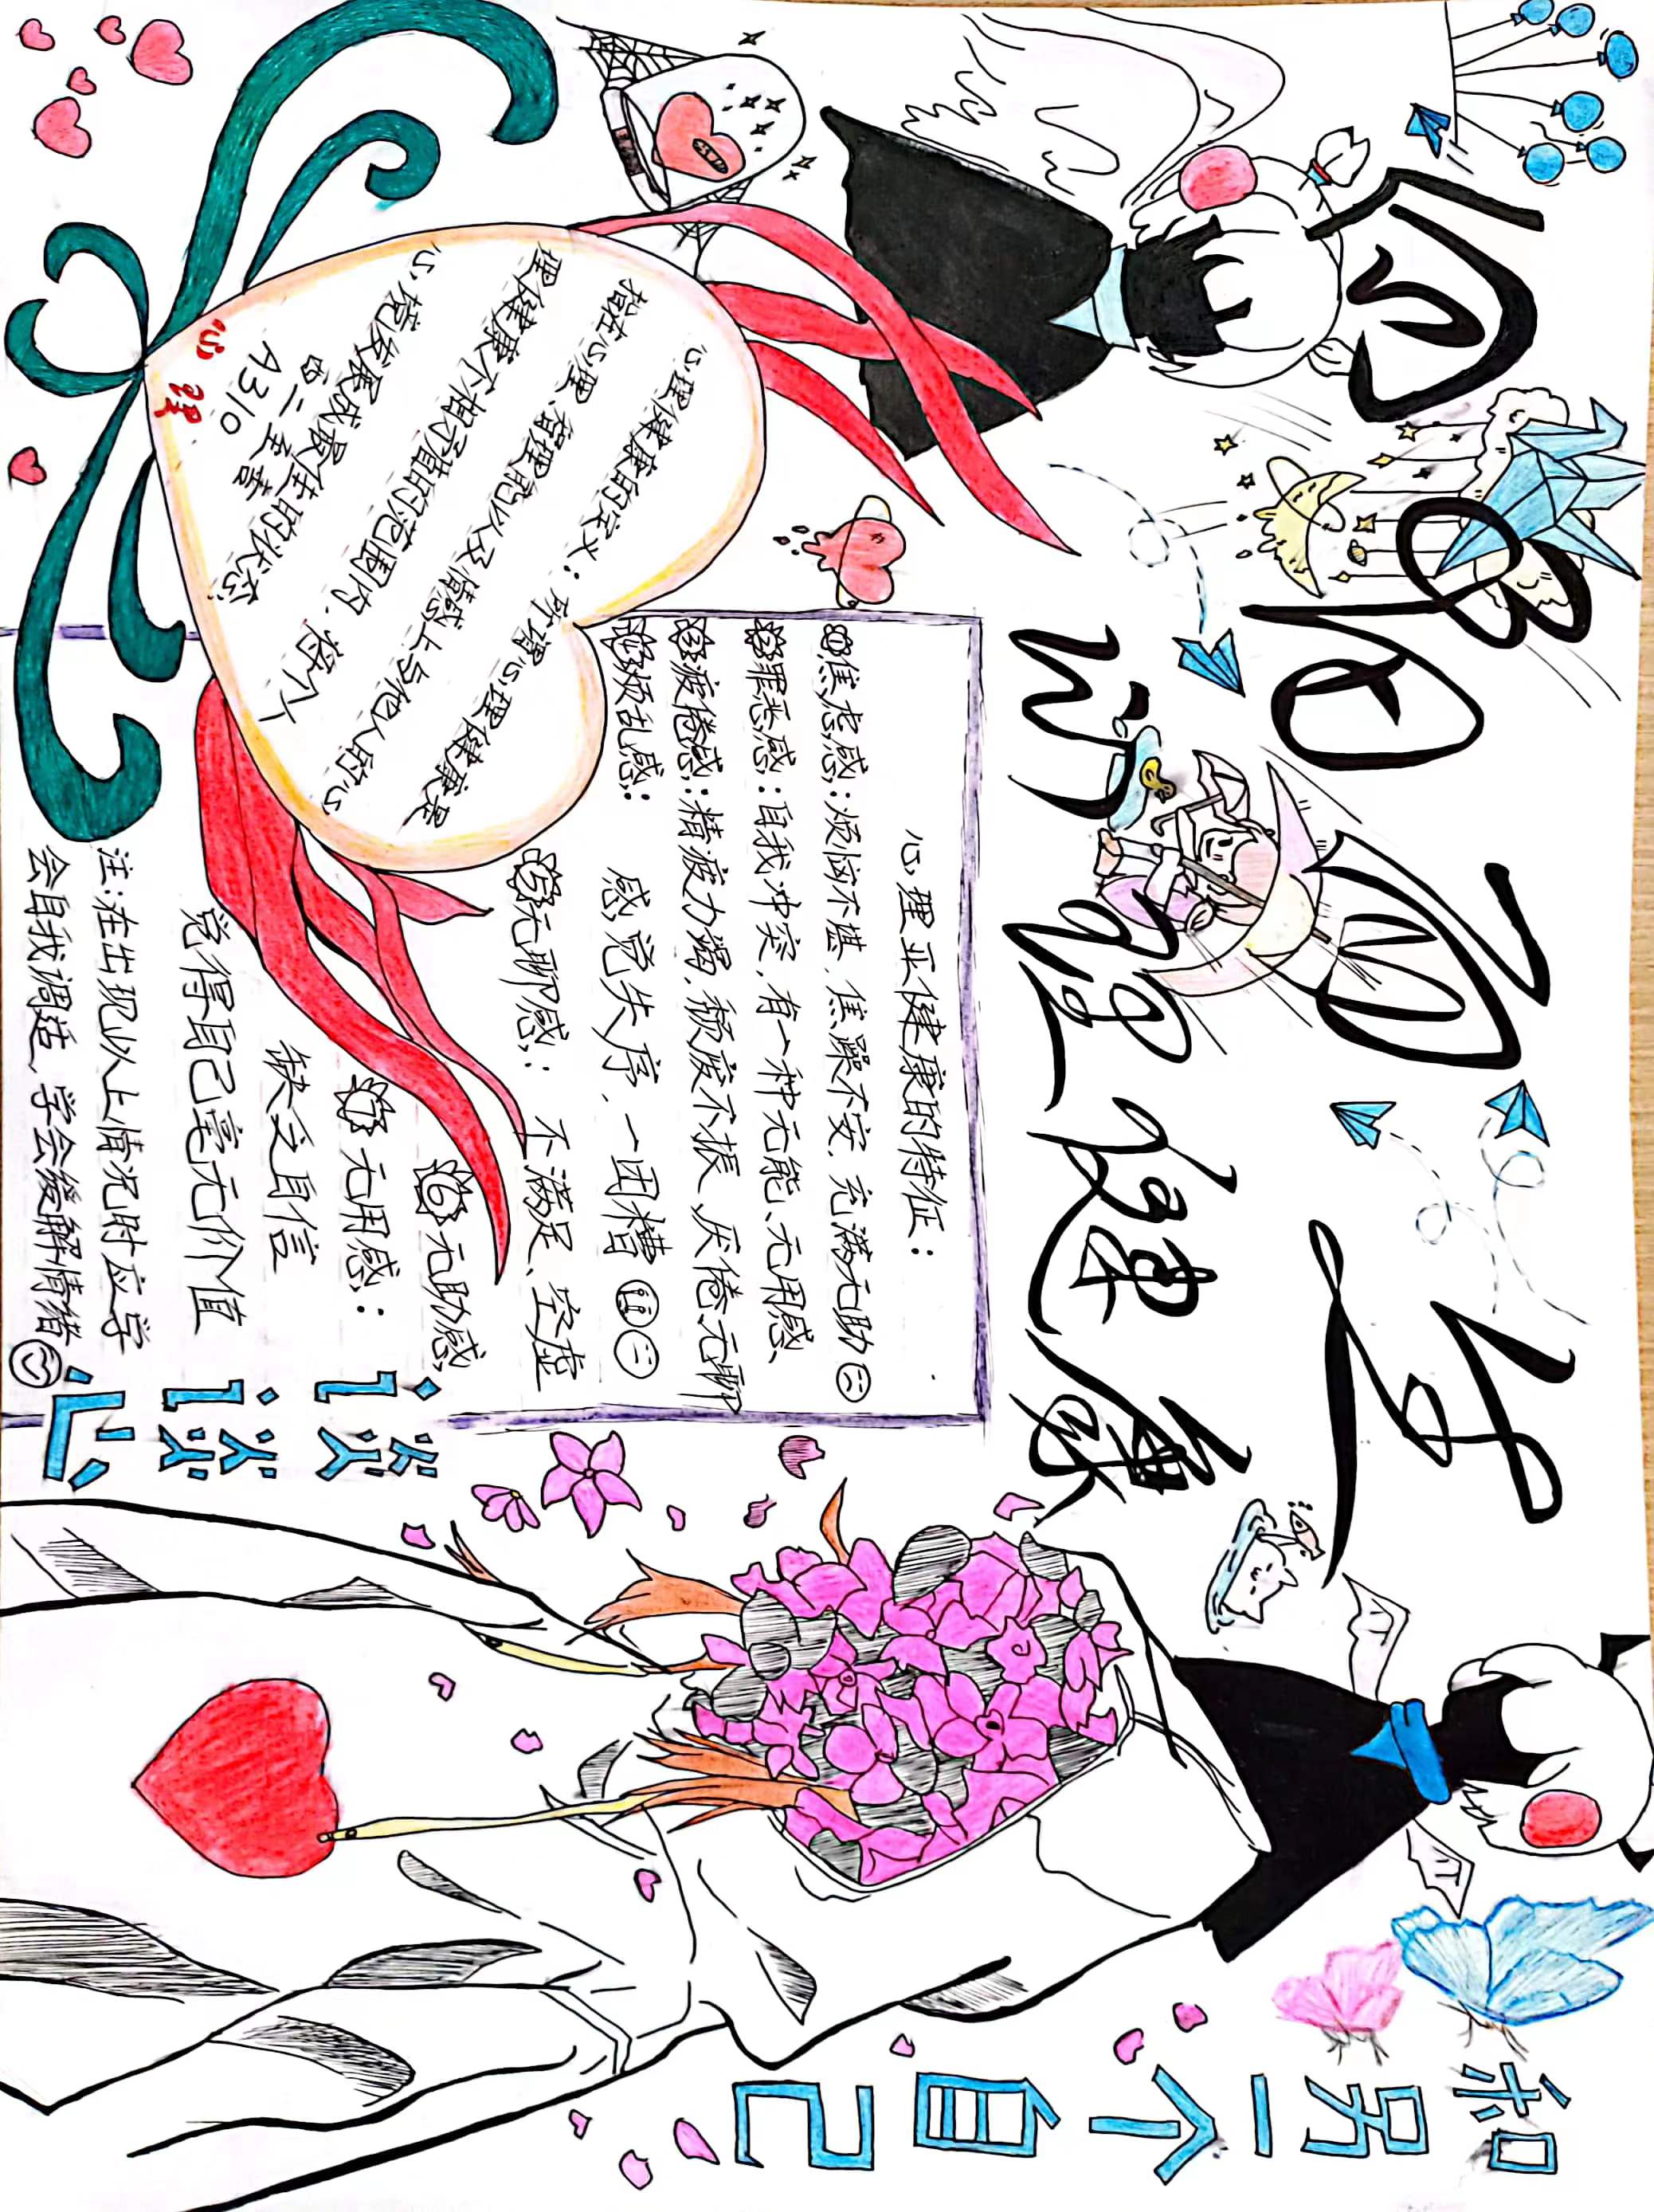 向阳而生
心理健康
和另一个自己
谈谈心
心理健康的定义:所谓心理健康是
指在心理、智理能以及情感上与他人的心
理健康不相矛盾的范围内,将个人
心境发展成最佳的状态
A310
心理
心理亚健康的特征:
①焦虑感:烦恼不堪,焦躁不安,充满无助
②罪恶感:自我冲突,有一种无能、无用感、
③疲倦感:精疲力竭,颓废不振、厌倦无聊
④烦乱感:
感觉失序,一团糟
⑤无聊感:不满足、空虚
⑥无助感
⑦无用感:
缺乏自信
觉得自己毫无价值
注:在出现以上情况时应学
会自我调适,学会缓解情绪